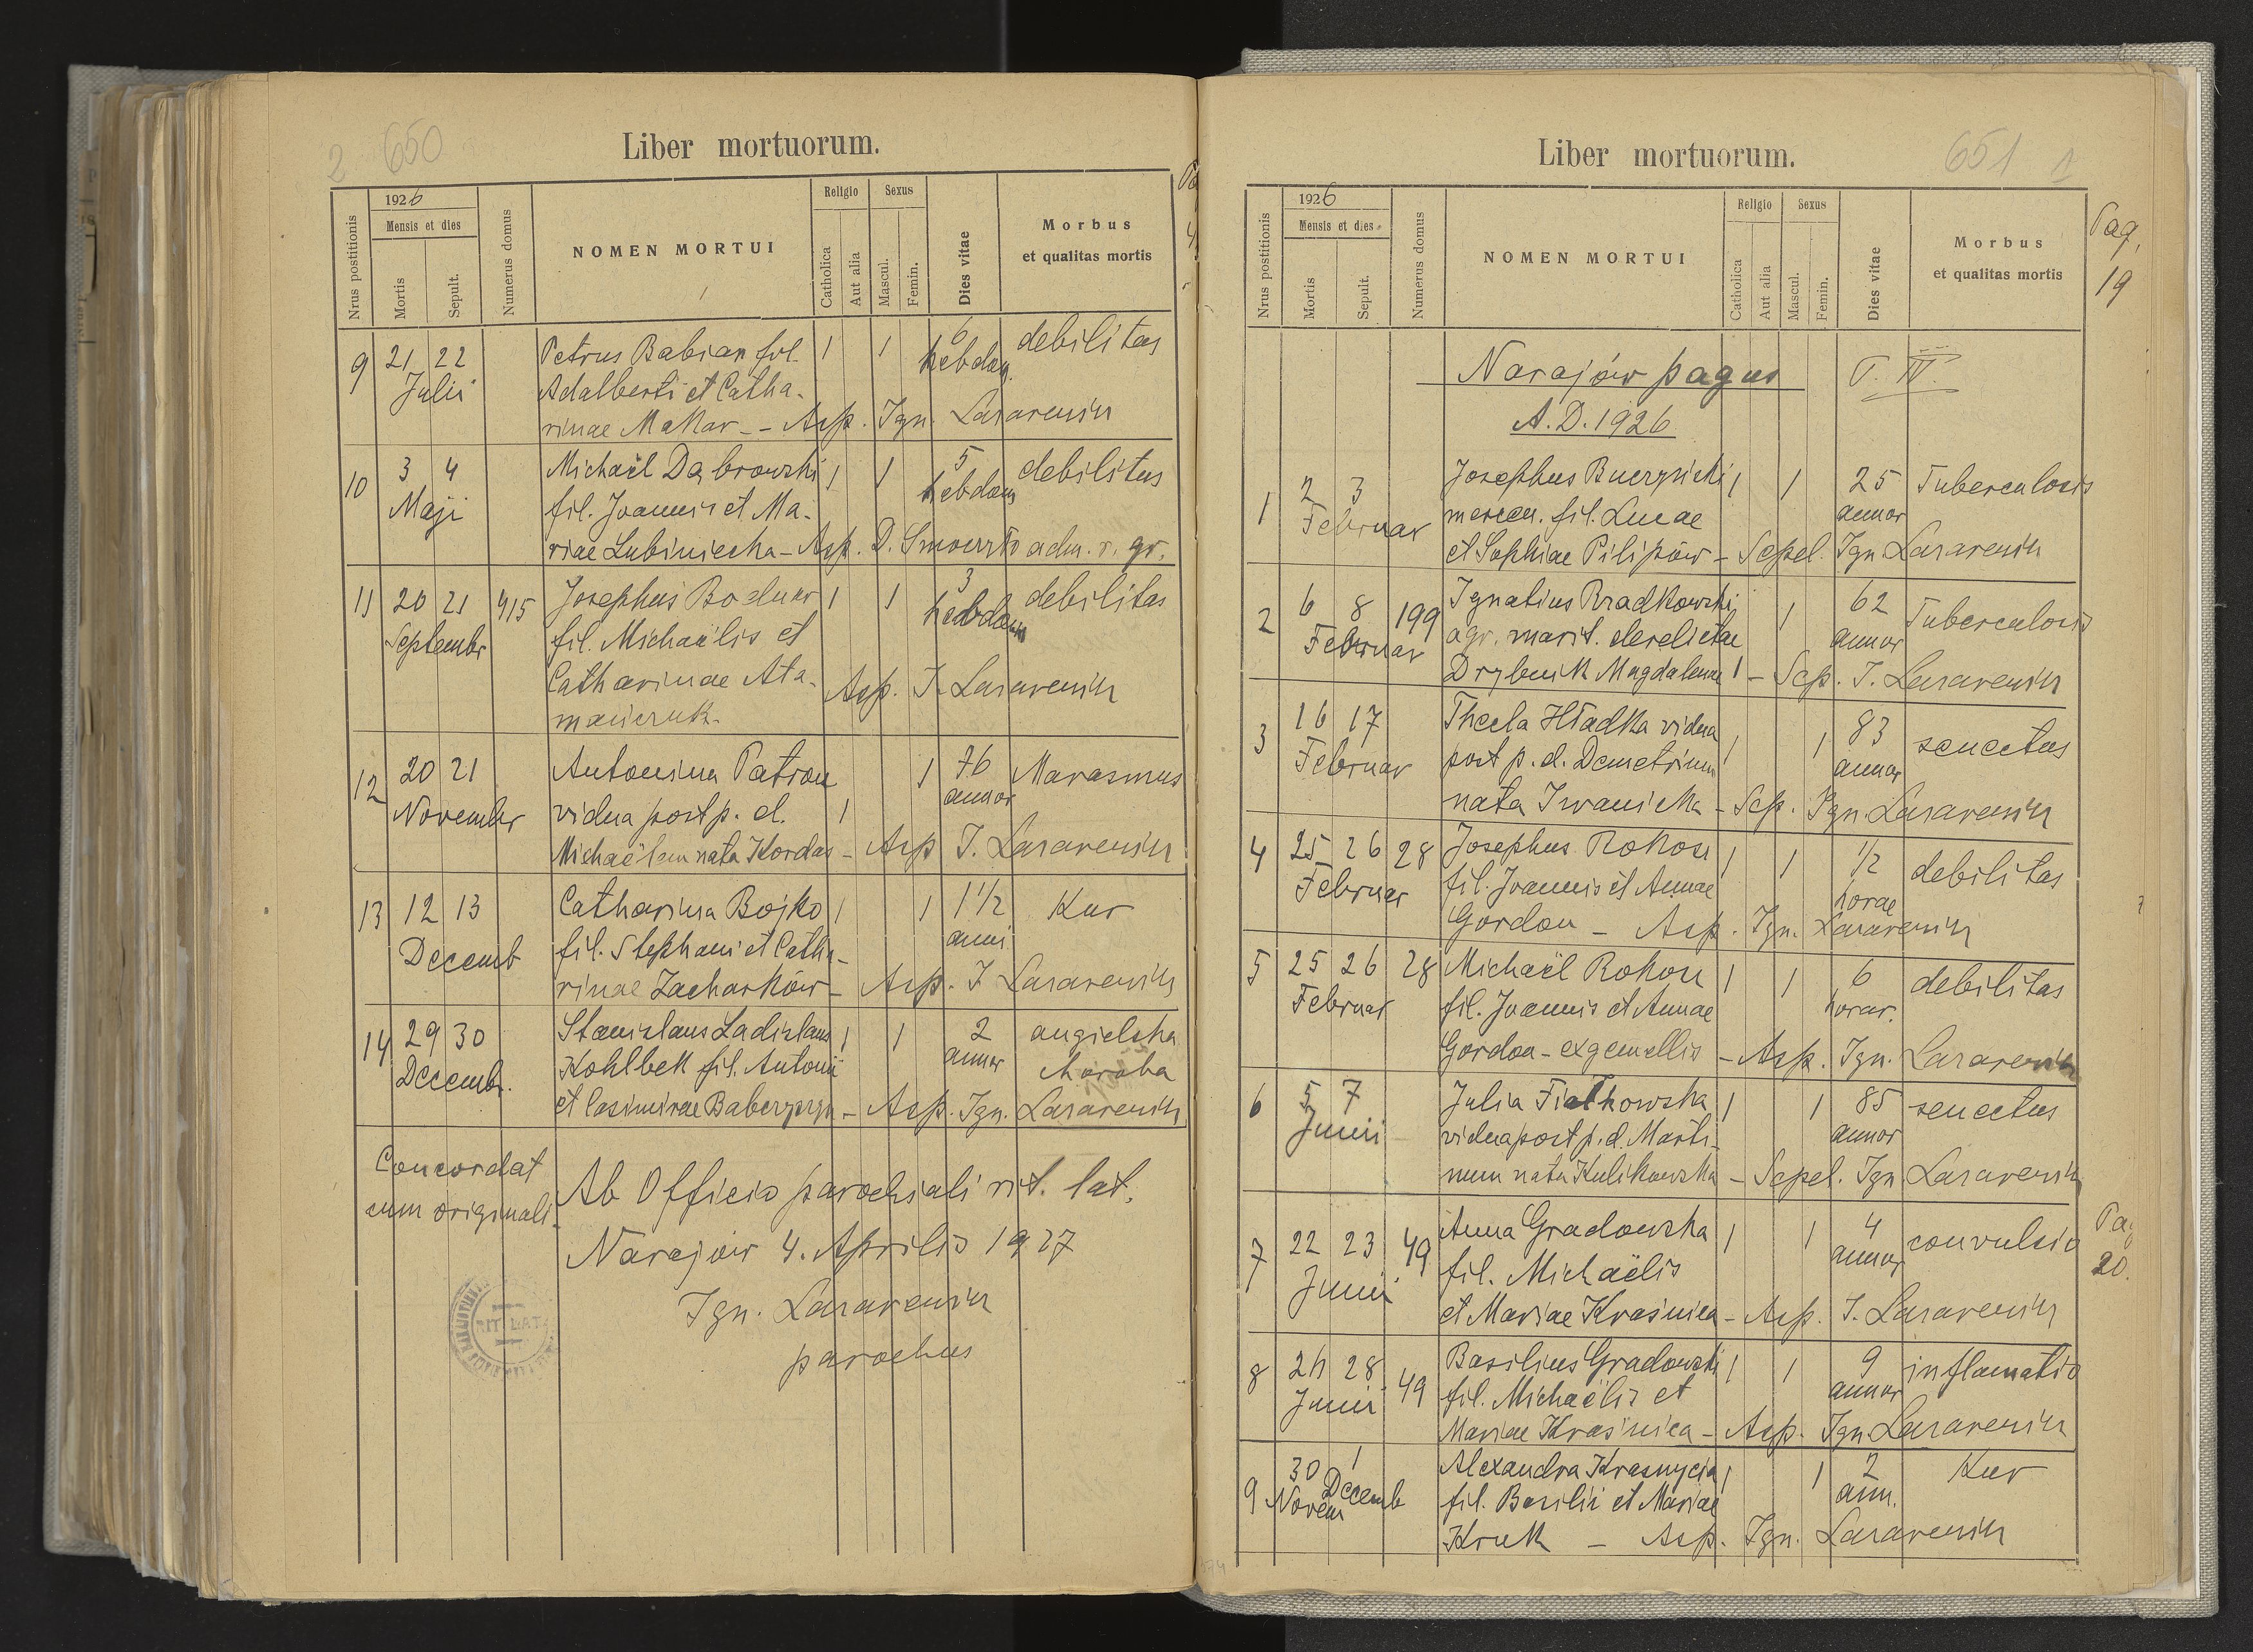 2 650
Liber mortuorum.
Nrus postitionis
1926
Mensis et dies
Mortis
Sepult.
Numerus domus
NOMEN MORTUI
Religio
Catholica
Aut alia
Sexus
Mascul.
Femin.
Dies vitae
Morbus
et qualitas mortis
9 21 22 Petrus Babian fil. 1 1 6 debilitas
Julii Adalberti et Catha- hebdom.
rinae Makar -- Asp. Ign. Lazarewicz
10 3 4 Michaël Dąbrowski 1 1 5 debilitas
Maji fil. Joannis et Ma- hebdom
riae Lubiniecka - Asp. D. adm. r. gr.
11 20 21 415 Josephus Bodnar 1 1 3 debilitas
Septembr fil. Michaëlis et hebdom
Catharinae Ata- Asp. I. Lazarewicz
mańczuk.
12 20 21 Antonina Patron 1 76 Marasmus
Novembr vidua post p. d. 1 annor
Michaëlem nata Kordas - Asp I. Lazarewicz
13 12 13 Catharina Bojko 1 1 1 1/2 Kur
Decemb fil. Stephani et Catha- anni
rinae Zacharków - Asp. I Lazarewicz
14 29 30 Stanislaus Ladislaus 1 1 2 angielska
Decembr. Kohlbek fil. Antonii annor choroba
et Casimirae - Asp. Ign. Lazarewicz
Concordat
cum originali.
Ab Officio parochiali rit. lat.
Narajów 4. Aprilis 1927
Ign. Lazarewicz
parochus
RIT. LAT.
Liber mortuorum.
651 1
Nrus postitionis
1926
Mensis et dies
Mortis
Sepult.
Numerus domus
NOMEN MORTUI
Religio
Catholica
Aut alia
Sexus
Mascul.
Femin.
Dies vitae
Morbus
et qualitas mortis
Pag.
19
Narajów pagus T. IV.
A. D. 1926
1 2 3 Josephus 1 1 25 Tuberculosis
Februar mercen. fil. Lucae annor
et Sophiae Pilipów - Sepel. Ign Lazarewicz
2 6 8 199 Ignatius Rradkowski 1 62 Tuberculosis
Februar agr. marit. derelictae annor
Drybnik Magdalenae 1 - Sep. I. Lazarewicz
3 16 17 Thecla Hładka vidua 1 1 83 senectus
Februar post p. d. Demetrium annor
nata Iwanicka - Sep. Ign. Lazarewicz
4 25 26 28 Josephus Rokosz 1 1 1/2 debilitas
Februar fil. Joannis et Annae horae
Gordon - Asp. Ign. Lazarewicz
5 25 26 28 Michaël Rokosz 1 1 6 debilitas
Februar fil. Joannis et Annae horar.
Gordon - ex gemellis - Asp. Ign. Lazarewicz
6 5 7 Julia Fiałkowska 1 1 85 senectus
Junii vidua post p. d. Marti- annor
num nata Kulikowska - Sepel. Ign Lazarewicz
7 22 23 49 Anna Gradowska 1 1 4 convulsio Pag
Junii fil. Michaëlis annor 20.
et Mariae Kraśnica - Asp. I. Lazarewicz
8 28 49 Basilius Gradowski 1 1 9 inflamatio
Junii fil. Michaëlis et annor
Mariae Kraśnica - Asp. Ign Lazarewicz
9 30 1 Alexandra Krasnycia 1 1 2 Kur
Novem Decemb fil. Basilii et Mariae ann.
Kruk - Asp. Ign. Lazarewicz